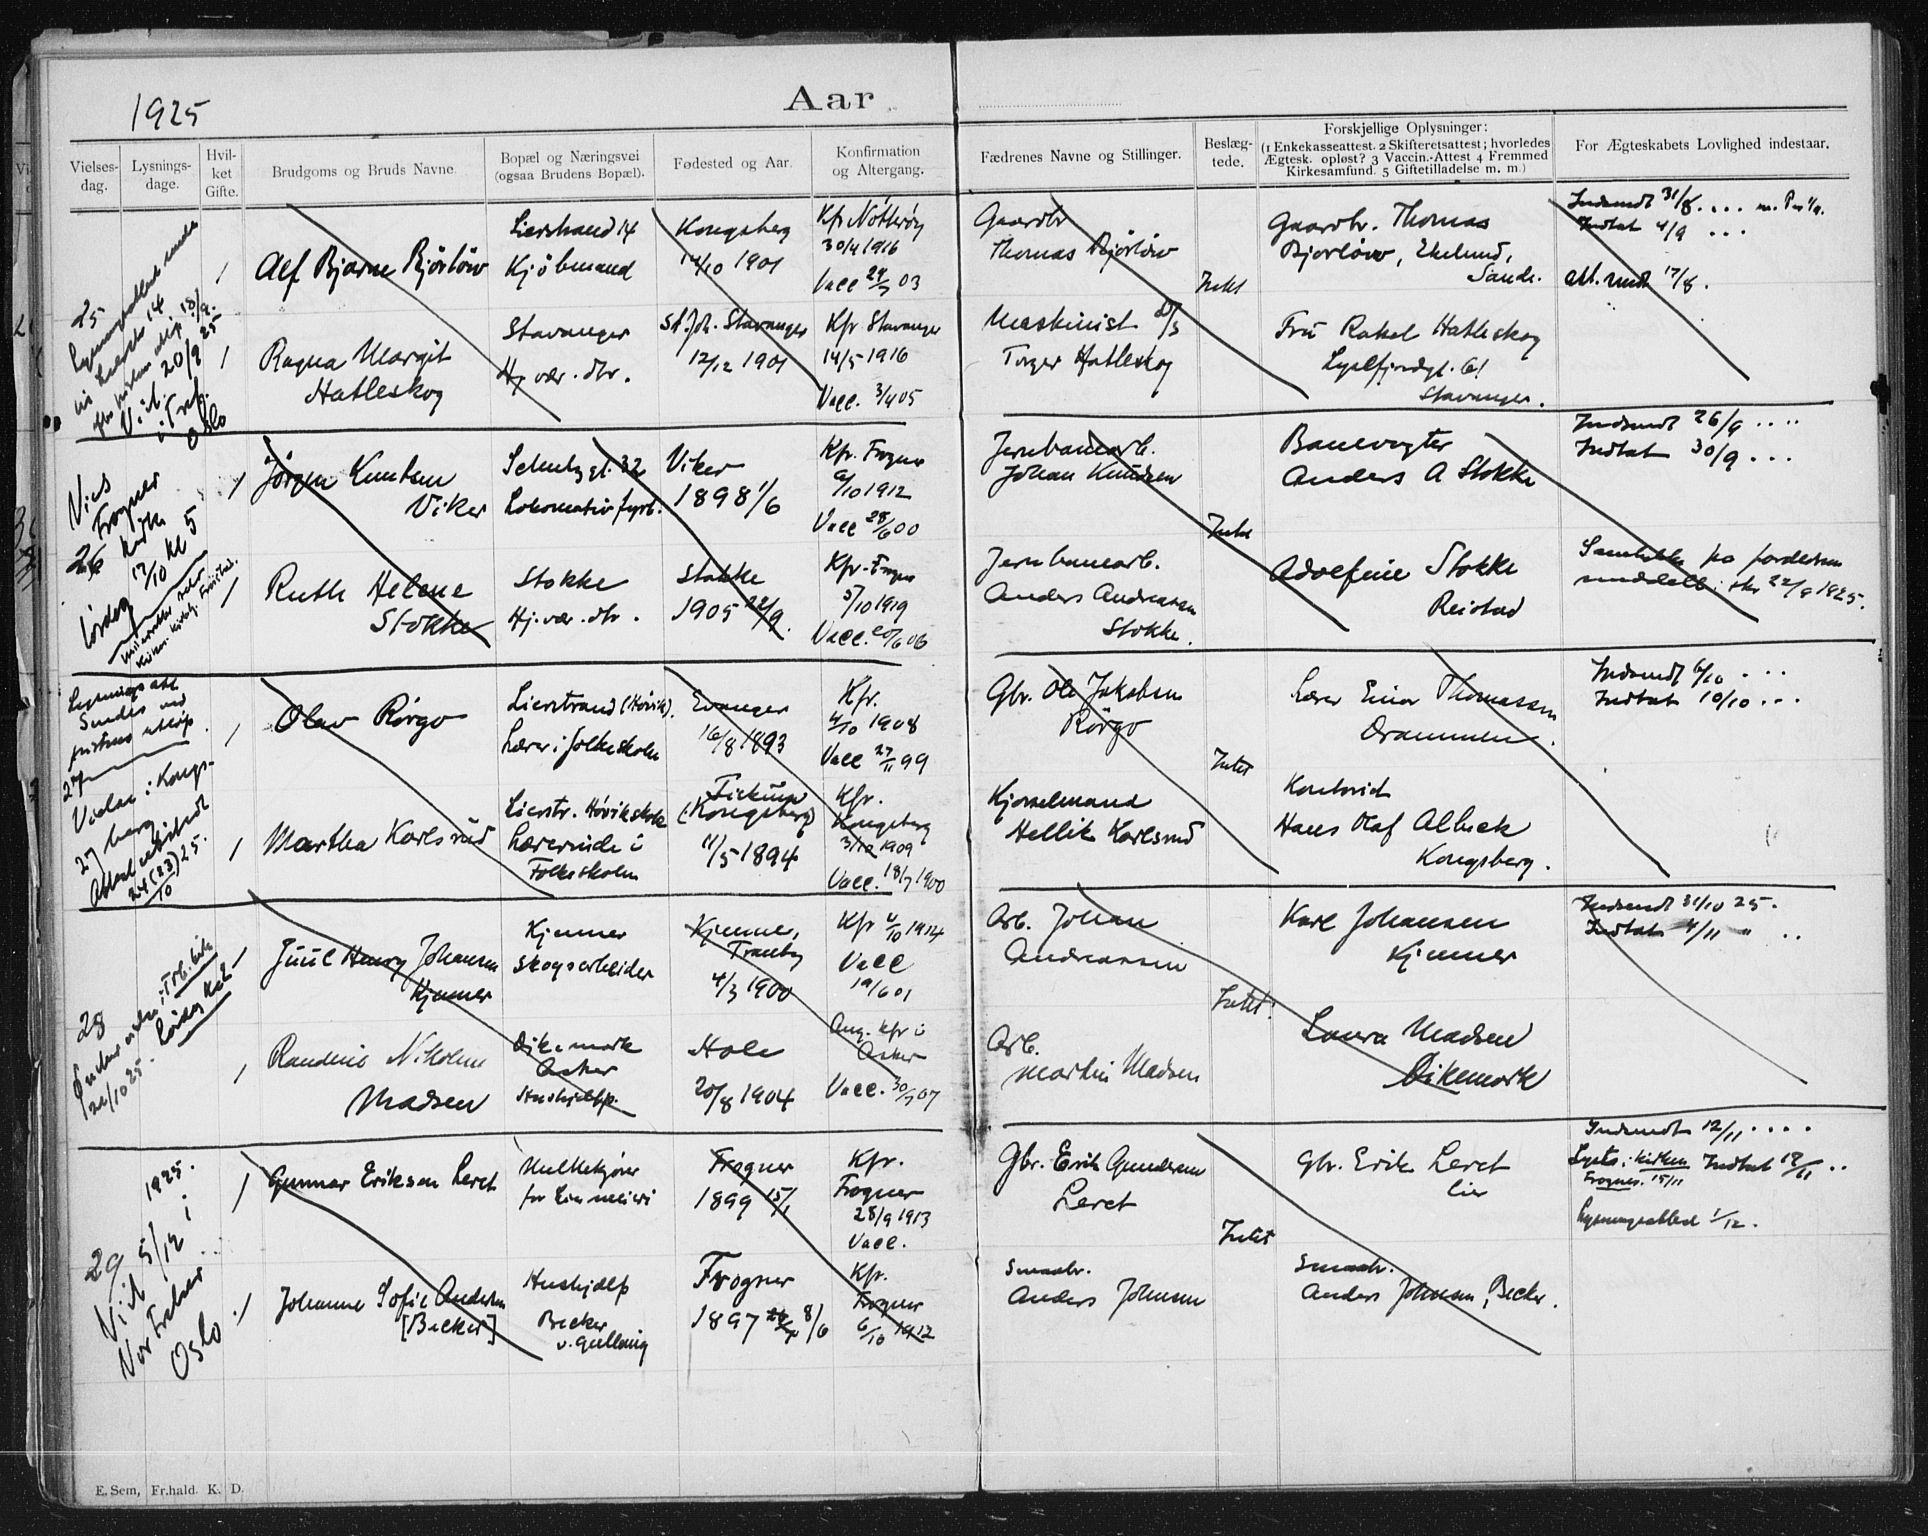 1925
Aar
Vielses-dag.
Lysnings-dage.
Hvil-ket Gifte.
Brudgoms og Bruds Navne.
Bopæl og Næringsvei (ogsaa Brudens Bopæl).
Fødested og Aar.
Konfirmation og Altergang.
Fædrenes Navne og Stillinger.
Beslæg-tede.
Forskjellige Oplysninger: (1 Enkekasseattest. 2 Skifteretsattest; hvorledes Ægtesk. opløst? 3 Vaccin.-Attest 4 Fremmed Kirkesamfund. 5 Giftetilladelse m. m.)
For Ægteskabets Lovlighed indestaar.
25
Viet. 20/9 25
Oslo
1
Alf Bjarne Bjørløw
Lierstrand 14
Kjøbmand
Kongsberg
14/10 1901
Kfr Nøtterøy
30/4 1916
Vacc 29/7 03
Gaardbr
Thomas Bjørløw
Intet
Gaardbr. Thomas
Bjørløw, Ekelund,
Sande.
Indsendt 31/8
Indtat 4/9
Att. sendt 17/8.
1
Ragna Margit
Hatleskog
Stavanger
Hj. vær. dtr.
St. Joh. Stavanger
12/12 1901
Kfr Stavanger
14/5 1916
Vacc. 3/4 05
Maskinist D/S
Torger Hatleskog
Fru Rakel Hatleskog
Lysefjordgt. 61
Stavanger.
26
Vies
Frogner
Kirke
Lørdag 17/10 Kl 5
1
Jørgen Knutsen
Viker
Schultzgt. 32
Lokomotivfyrb.
Viker
1898 1/6
Kfr. Frogner
6/10 1912
Vacc 28/6 00
Jernbanearb.
Johan Knudsen
Intet
Banevogter
Anders A Stokke
Indsendt 26/9
Indtat 30/9
1
Ruth Helene
Stokke
Stokke
Hj. vær. dtr.
Stokke
1905 22/9.
Kfr. Frogner
5/10 1919
Vacc. 20/6 06
Jernbanearb.
Anders Andreassen
Stokke.
Adolfine Stokke
Reistad
Samtykke fra forældrene
meddelt i skr 22/9 1925.
Lysningsatt
Sendes ved
fristens utløp.
27
Vielse i Kongs-
berg
24 (23)/10 25.
1
Olav Rørgo
Lierstrand (Høvik).
Lærer i folkeskolen
Evanger
16/8 1893
Kfr.
4/10 1908
Vacc 27/11 99
Gbr. Ole Jakobsen
Rørgo
Intet
Lærer Einar Thomassen
Drammen.
Indsendt 6/10
Indtat 10/10
1
Martha Karlsrud
Lierstr. Høvikskole
Lærerinde i
Folkeskolen
(Kongsberg)
11/5 1894
Kfr.
Kongsberg
3/10 1909
Vacc. 18/7 1900
Kjørselmand
Hellik Karlsrud
Kontorist
Hans Olaf Albeck
Kongsberg.
28
1
Juul Henry Johansen
Kjenner
Kjenner
Skogsarbeider
Kjenner,
Tranby
4/3 1900
Kfr 4/10 1914
Vacc
19/6 01
Arb. Johan
Andreassen
Intet.
Karl Johansen
Kjenner
Indsendt 31/10 25.
Indtat 4/11 "
1
Randine Nikoline
Madsen
Dikemark
Asker
Hushjælp.
Hole
20/8 1904
Ang. Kfr i
Asker
Vacc. 30/7 07
Arb.
Martin Madsen
Laura Madsen
Dikemark
29
1925.
Viet 5/12 i
Vor Frelser
Oslo
1
Gunnar Eriksen Leret
Melkekjører
for Lier meieri
Frogner
1899 15/1
Kfr.
Frogner
28/9 1913
Vacc.
Gbr. Erik Gundersen
Leret
Intet
Gbr. Erik Leret
Lier
Indsendt 12/11
Lyst i kirken Indtat 12/11
Frogner. 15/11
Lysningsattest 1/12.
1
Johanne Sofie Andersen
[Becker]
Hushjælp
Becker
v. Gullaug
Frogner
1897 8/6
Kfr.
Frogner
6/10 1912
Smaabr.
Anders Johnsen
Smaabr.
Anders Johnsen, Becker.
E. Sem, Fr.hald K. D.